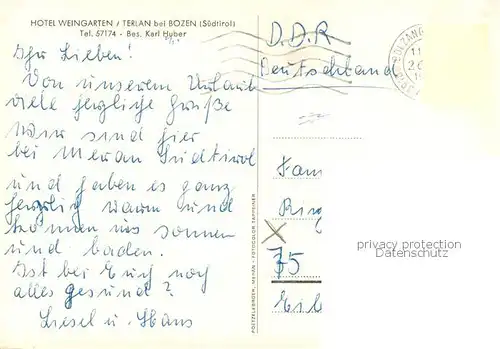 HOTEL WEINGARTEN / TERLAN bei BOZEN (Südtirol)
Tel. 57174 - Bes. Karl Huber
Ihr Lieben!
Von unserem Urlaub
viele herzliche Grüße
wir sind hier
bei Meran Südtirol
und haben es ganz
herzlich warm und
können uns sonnen
und baden.
Ist bei Euch noch
alles gesund?
Liesel u. Hans
POETZELBERGER, MERAN - FOTOCOLOR TAPPEINER
D.D.R
Deutschland
BOLZANO
Fam
Ring
75
Eil
privacy protection
Datenschutz